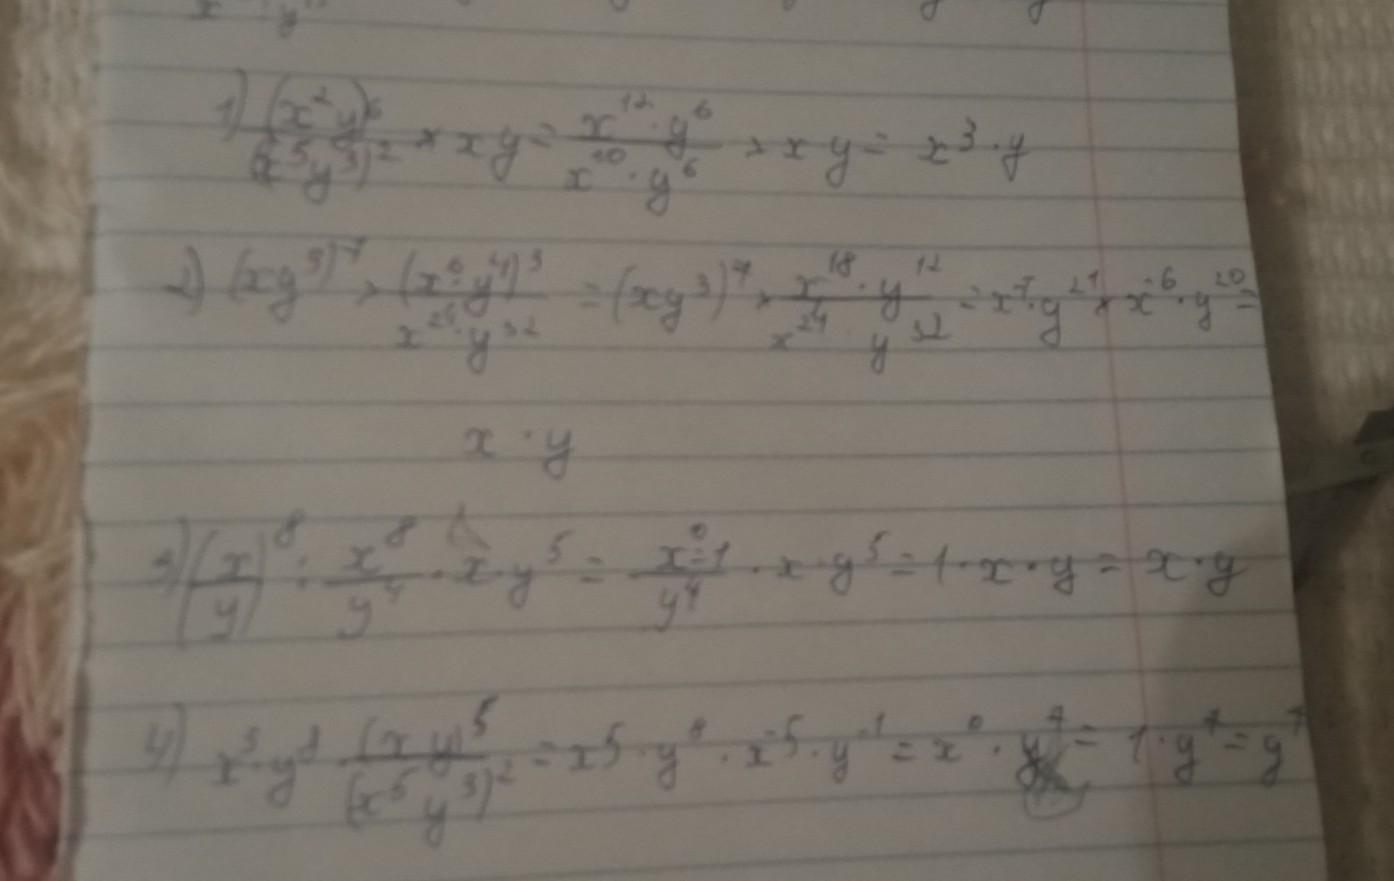 1) (x²y)⁶/(x⁵y³)² × xy = x¹²·y⁶/x¹⁰·y⁶ × xy = x³·y
2) (xy³)⁷ × (x⁶·y⁴)³/x²⁴·y³² = (xy³)⁷ × x¹⁸·y¹²/x²⁴·y³² = x⁷·y²¹ × x⁻⁶·y²⁰ =
x · y
3) (x/y)⁸ : x⁸/y⁴ · x·y⁵ = x⁰=1/y⁴ · x·y⁵ = 1·x·y = x·y
4) x⁵·y⁸ · (xy)⁵/(x⁵y³)² = x⁵·y⁸ · x⁻⁵·y⁻¹ = x⁰·y⁷ = 1·y⁷ = y⁷